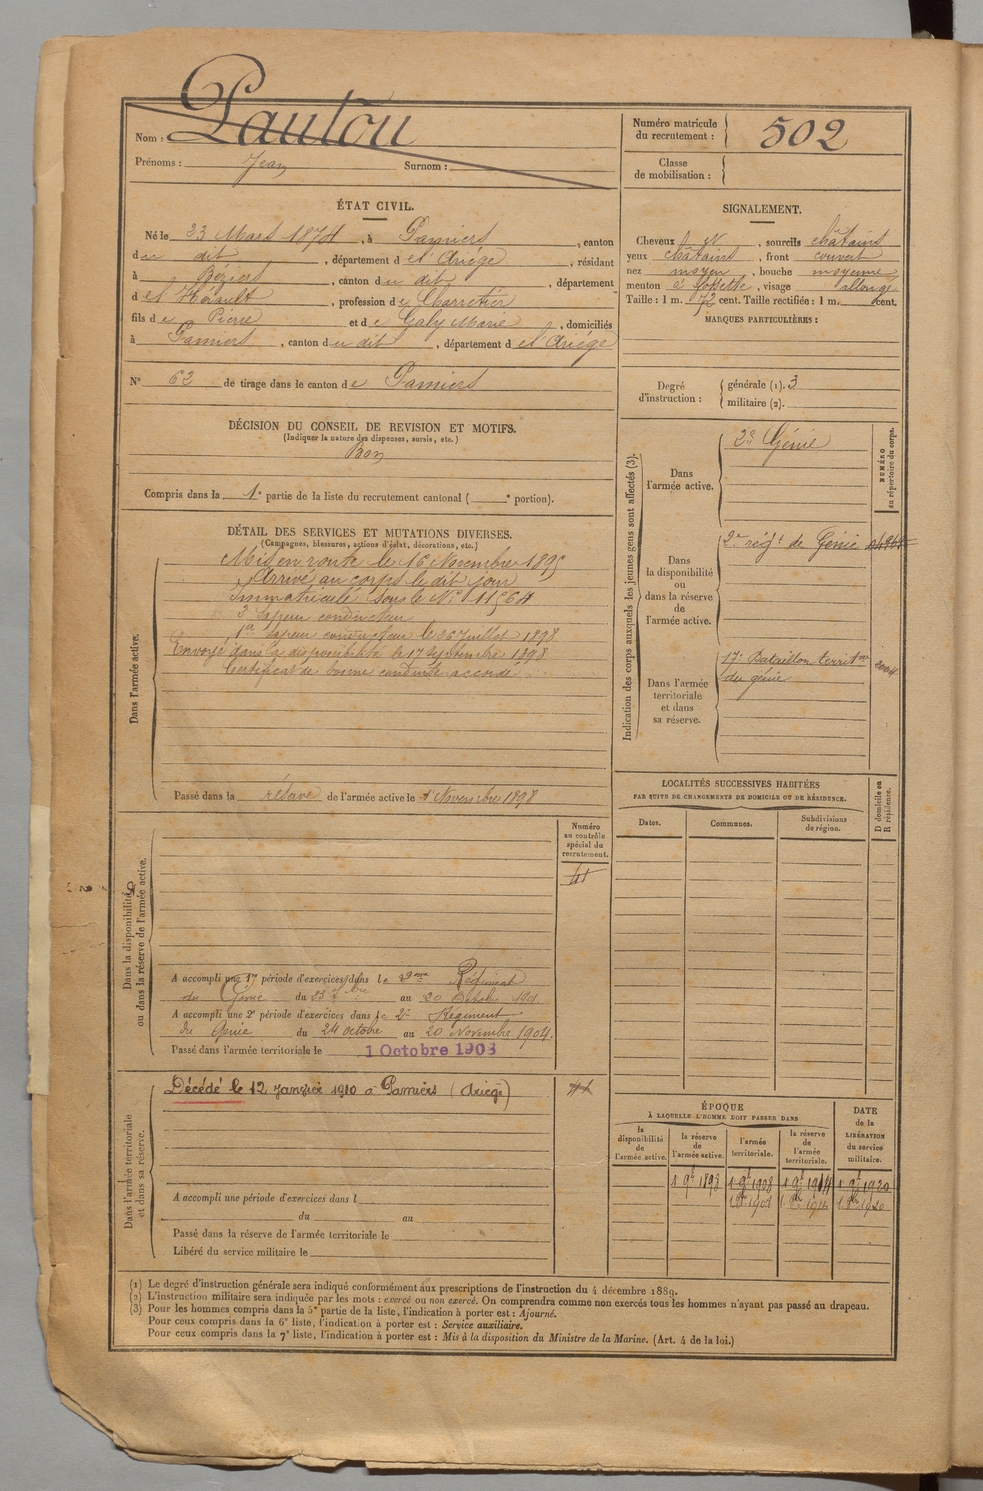 Nom : Pautou
Prénoms : Jean Surnom :
Numéro matricule
du recrutement : 502
Classe
de mobilisation :
ÉTAT CIVIL.
Né le 23 Mars 1874, à Pamiers, canton
du dit, département de l'Ariège, résidant
à Béziers, canton du dit, département
de l'Hérault, profession de Charretier
fils de Pierre et de Galy Marie, domiciliés
à Pamiers, canton du dit, département de l'Ariège
N° 62 de tirage dans le canton de Pamiers
SIGNALEMENT.
Cheveux N, sourcils châtains
yeux châtains, front couvert
nez moyen, bouche moyenne
menton à fossette, visage allongé
Taille : 1 m. 72 cent. Taille rectifiée : 1 m. cent.
MARQUES PARTICULIÈRES :
Degré
d'instruction :
générale (1). 3
militaire (2).
DÉCISION DU CONSEIL DE REVISION ET MOTIFS.
(Indiquer la nature des dispenses, sursis, etc.)
Bon
Compris dans la 1e partie de la liste du recrutement cantonal ( e portion).
DÉTAIL DES SERVICES ET MUTATIONS DIVERSES.
(Campagnes, blessures, actions d'éclat, décorations, etc.)
Dans l'armée active.
Mis en route le 16 Novembre 1895
Arrivé au corps le dit jour
Immatriculé sous le N° 11564
2e Sapeur conducteur
1er Sapeur conducteur le 26 Juillet 1898
Envoyé dans la disponibilité le 17 Septembre 1898
Certificat de bonne conduite accordé
Passé dans la réserve de l'armée active le 1 Novembre 1898
Indication des corps auxquels les jeunes gens sont affectés (3).
NUMÉRO
au répertoire du corps.
Dans
l'armée active.
2e Génie
Dans
la disponibilité
ou
dans la réserve
de
l'armée active.
2e régt de Génie
Dans l'armée
territoriale
et dans
sa réserve.
17e Bataillon territal
du génie
2004
LOCALITÉS SUCCESSIVES HABITÉES
PAR SUITE DE CHANGEMENTS DE DOMICILE OU DE RÉSIDENCE.
Dates. Communes. Subdivisions
de région.
D domicile ou
R résidence.
Numéro
au contrôle
spécial du
recrutement.
Dans la disponibilité
ou dans la réserve de l'armée active.
A accompli une 1re période d'exercices dans le 2ème Régiment
du Génie du 23 7bre au 20 Octobre 1901
A accompli une 2e période d'exercices dans le 2e Régiment
du Génie du 24 octobre au 20 Novembre 1904.
Passé dans l'armée territoriale le 1 Octobre 1908
Dans l'armée territoriale
et dans sa réserve.
Décédé le 12 Janvier 1910 à Pamiers (Ariège)
A accompli une période d'exercices dans l
du au
Passé dans la réserve de l'armée territoriale le
Libéré du service militaire le
ÉPOQUE
À LAQUELLE L'HOMME DOIT PASSER DANS
DATE
de la
LIBÉRATION
du service
militaire.
la
disponibilité
de
l'armée active.
la réserve
de
l'armée active.
l'armée
territoriale.
la réserve
de
l'armée
territoriale.
1 9bre 1898 1 9bre 1908 1 9bre 1914 1 9bre 1920
1 8bre 1908 1 8bre 1914 1 8bre 1920
(1) Le degré d'instruction générale sera indiqué conformément aux prescriptions de l'instruction du 4 décembre 1889.
(2) L'instruction militaire sera indiquée par les mots : exercé ou non exercé. On comprendra comme non exercés tous les hommes n'ayant pas passé au drapeau.
(3) Pour les hommes compris dans la 5e partie de la liste, l'indication à porter est : Ajourné.
Pour ceux compris dans la 6e liste, l'indication à porter est : Service auxiliaire.
Pour ceux compris dans la 7e liste, l'indication à porter est : Mis à la disposition du Ministre de la Marine. (Art. 4 de la loi.)